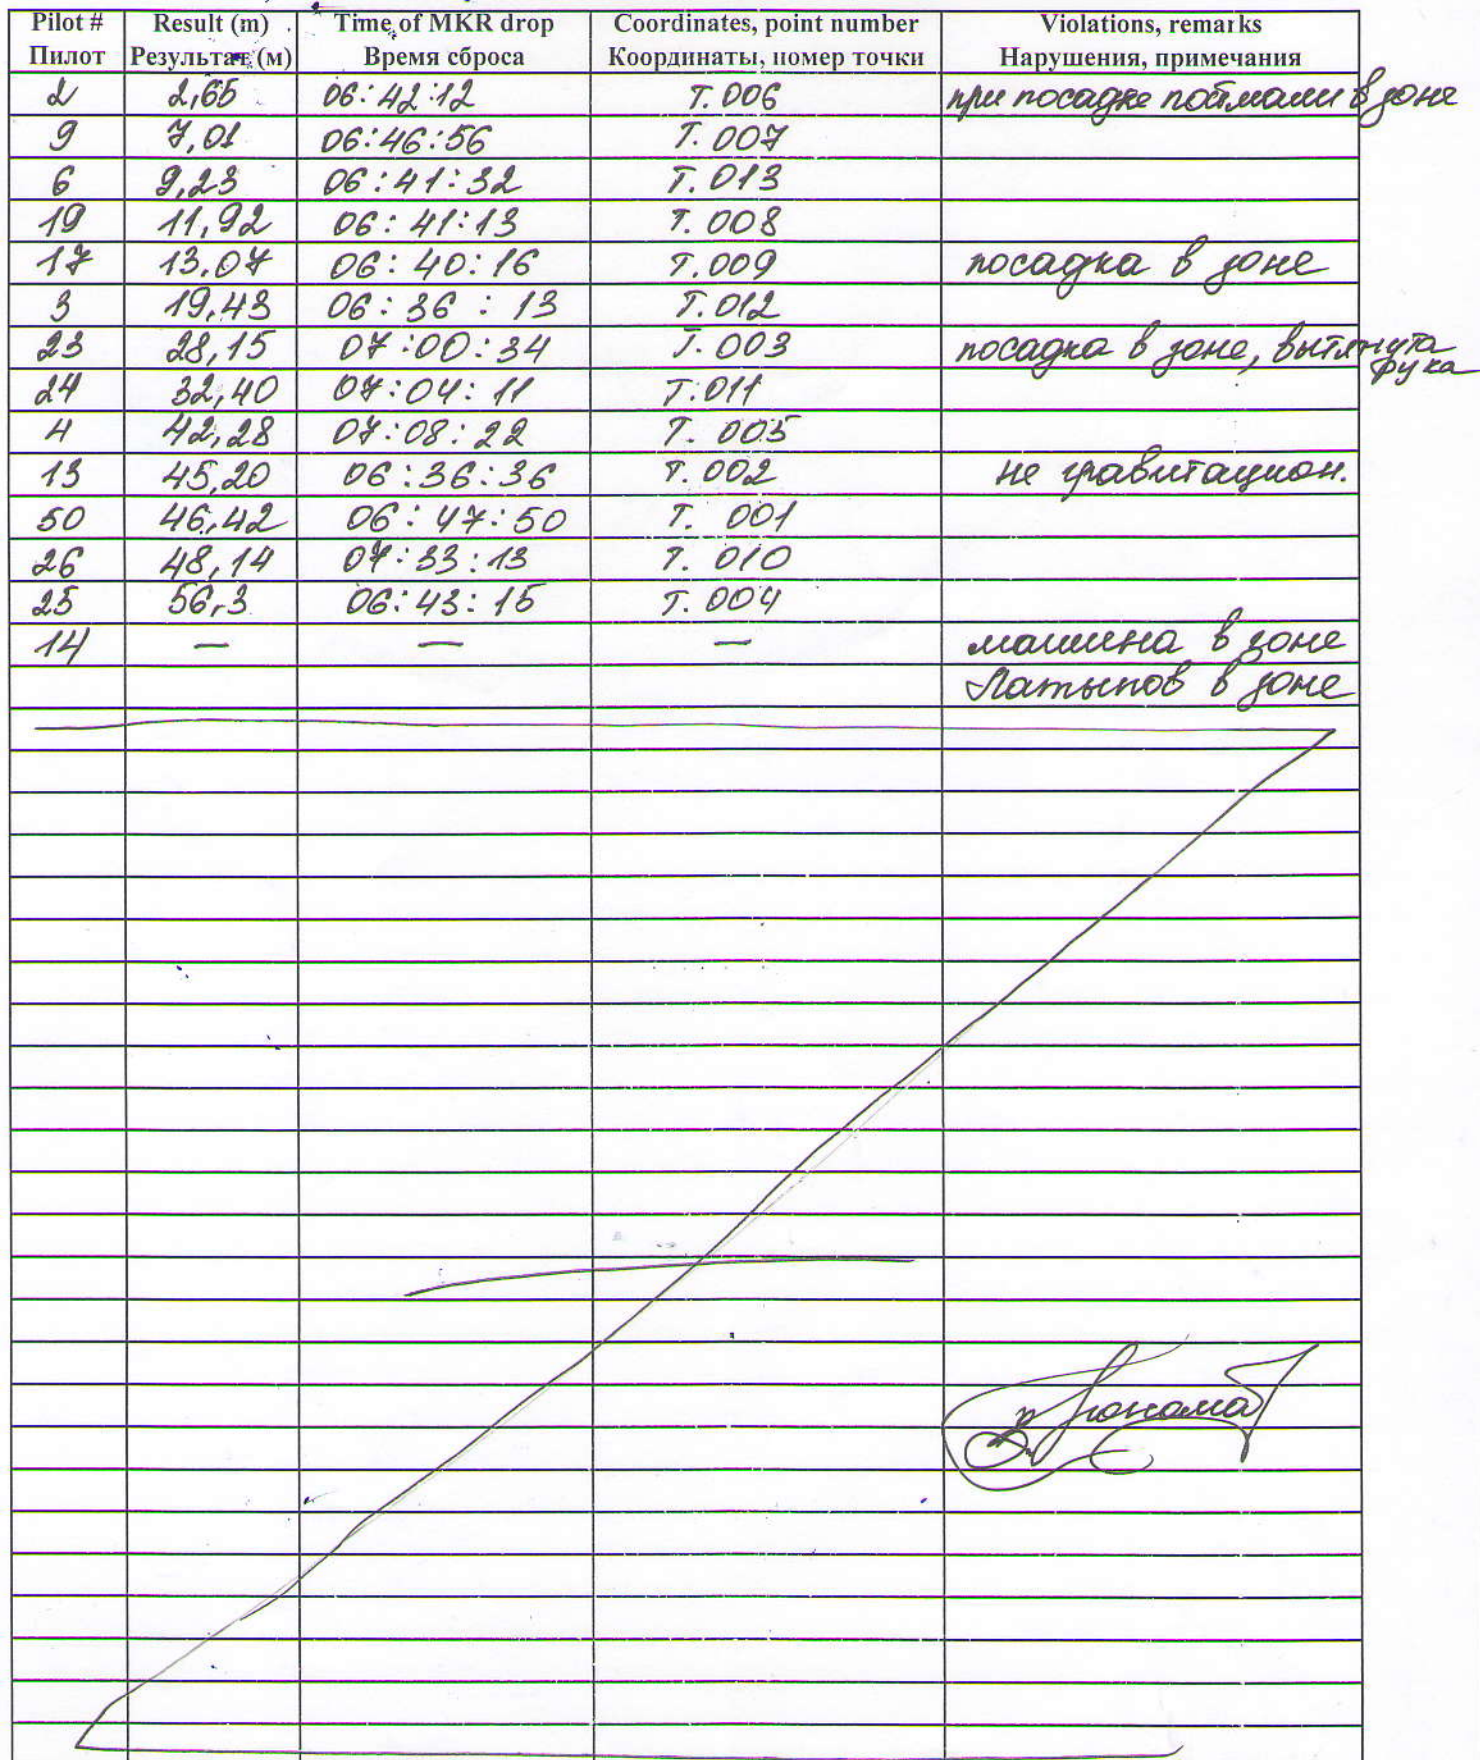 Pilot # Result (m) Time of MKR drop Coordinates, point number Violations, remarks
Пилот Результат (м) Время сброса Координаты, номер точки Нарушения, примечания
2 2,65 06:42:12 Т. 006 при посадке поймали в зоне
9 7,01 06:46:56 Т. 007
6 9,23 06:41:32 Т. 013
19 11,92 06:41:13 Т. 008
17 13,07 06:40:16 Т. 009 посадка в зоне
3 19,43 06:36:13 Т. 012
23 28,15 07:00:34 Т. 003 посадка в зоне, вытянута
рука
24 32,40 07:04:11 Т. 011
4 42,28 07:08:22 Т. 005
13 45,20 06:36:36 Т. 002 не гравитацион.
50 46,42 06:47:50 Т. 001
26 48,14 07:33:13 Т. 010
25 56,3 06:43:15 Т. 004
14 — — — машина в зоне
Латыпов в зоне